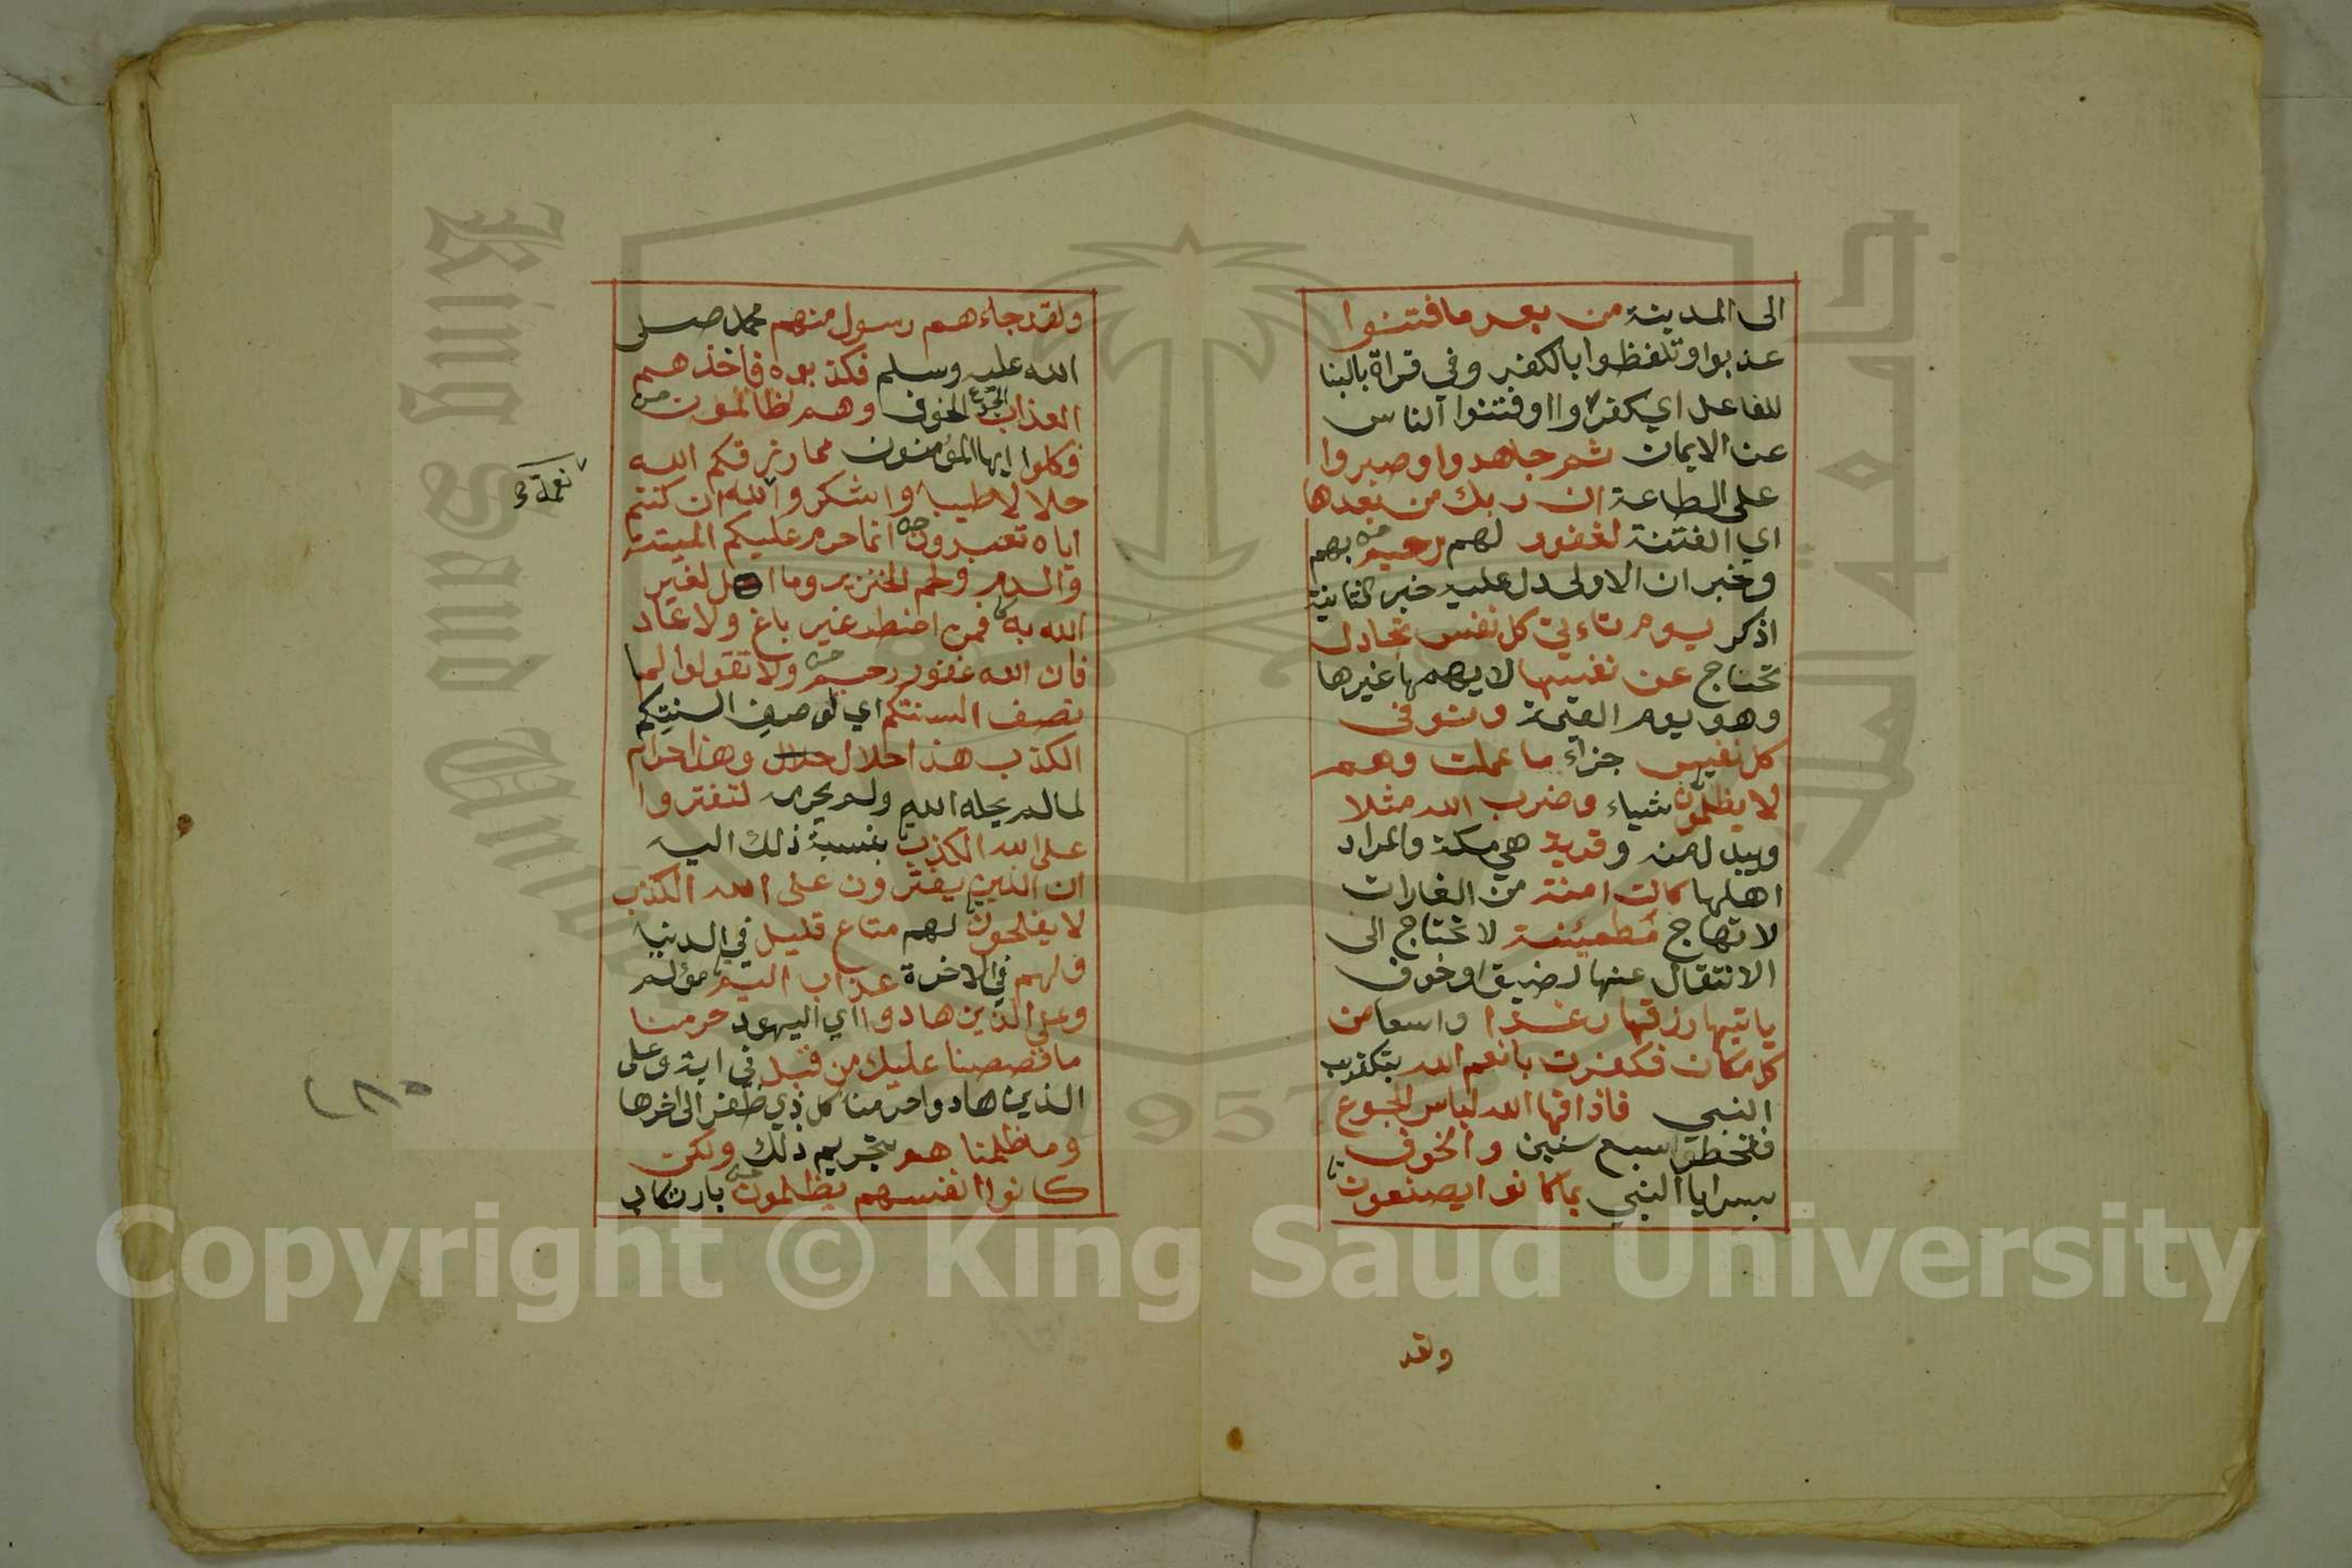 الى المدينة من بعد ما فتنوا
عذبوا وتلفظوا بالكفر وفي قراة بالبنا
للفاعل اي كفروا او فتنوا الناس
عن الايمان ثم جاهدوا وصبروا
على الطاعة ان ربك من بعدها
اي الفتنة لغفور لهم رحيم بهم
وخبر ان الاولى دل عليه خبر الثانية
اذكر يوم تاءتي كل نفس تجادل
تحتاج عن نفسها لا يهمها غيرها
وهو يوم القيمة وتوفى
كل نفس جزاء ما عملت وهم
لا يظلمون شياء وضرب الله مثلا
ويبدل منه وقرية هي مكة والمراد
اهلها كانت امنة من الغارات
لا تهاج مطمئنة لا تحتاج الى
الانتقال عنها لضيق او خوف
ياتيها رزقها رغدا واسعا من
كل مكان فكفرت بانعم الله بتكذيب
النبي فاذاقها الله لباس الجوع
فقحطوا سبع سنين والخوف
بسرايا النبي بما كانوا يصنعون
ولقد
ولقد جاءهم رسول منهم محمد صلى
الله عليه وسلم فكذبوه فاخذهم
العذاب الجوع الخوف وهم ظالمون
فكلوا ايها المؤمنون مما رزقكم الله
حلالا طيبا واشكروا الله ان كنتم
نعمة
اياه تعبدون انما حرم عليكم الميتة
والدم ولحم الخنزير وما اهل لغير
الله به فمن اضطر غير باغ ولا عاد
فان الله غفور رحيم ولا تقولوا لما
تصف السنتكم اي لوصف السنتكم
الكذب هذا حلال حلال وهذا حرام
لما لم يحله الله ولم يحرمه لتفتروا
على الله الكذب بنسبة ذلك اليه
ان الذين يفترون على الله الكذب
لا يفلحون لهم متاع قليل في الدنيا
ولهم في الاخرة عذاب اليم مؤلم
وعلى الذين هادوا اي اليهود حرمنا
ما قصصنا عليك من قبل في اية وعلى
الذين هادوا حرمنا كل ذي ظفر الى اخرها
وما ظلمنا هم بتحريم ذلك ولكن
كانوا انفسهم يظلمون بارتكاب
King Saud University
1957
Copyright © King Saud University